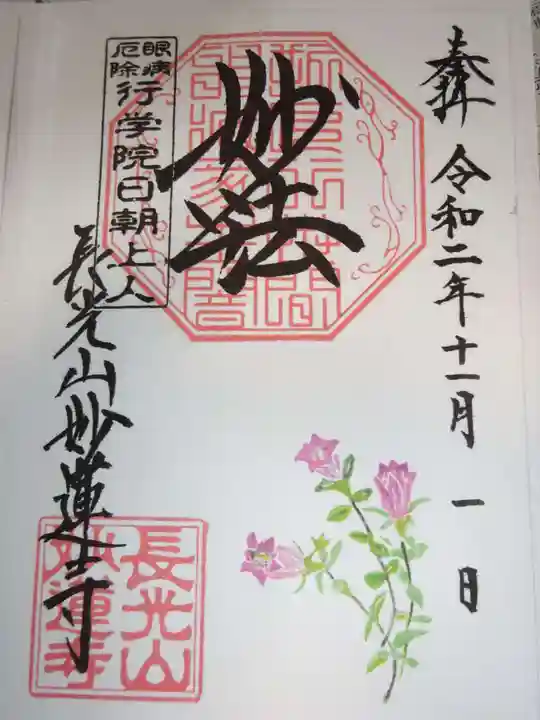 奉拝 令和二年十一月一日
妙法
眼病
厄除
行学院日朝上人
長光山妙蓮寺
長光山
妙蓮寺